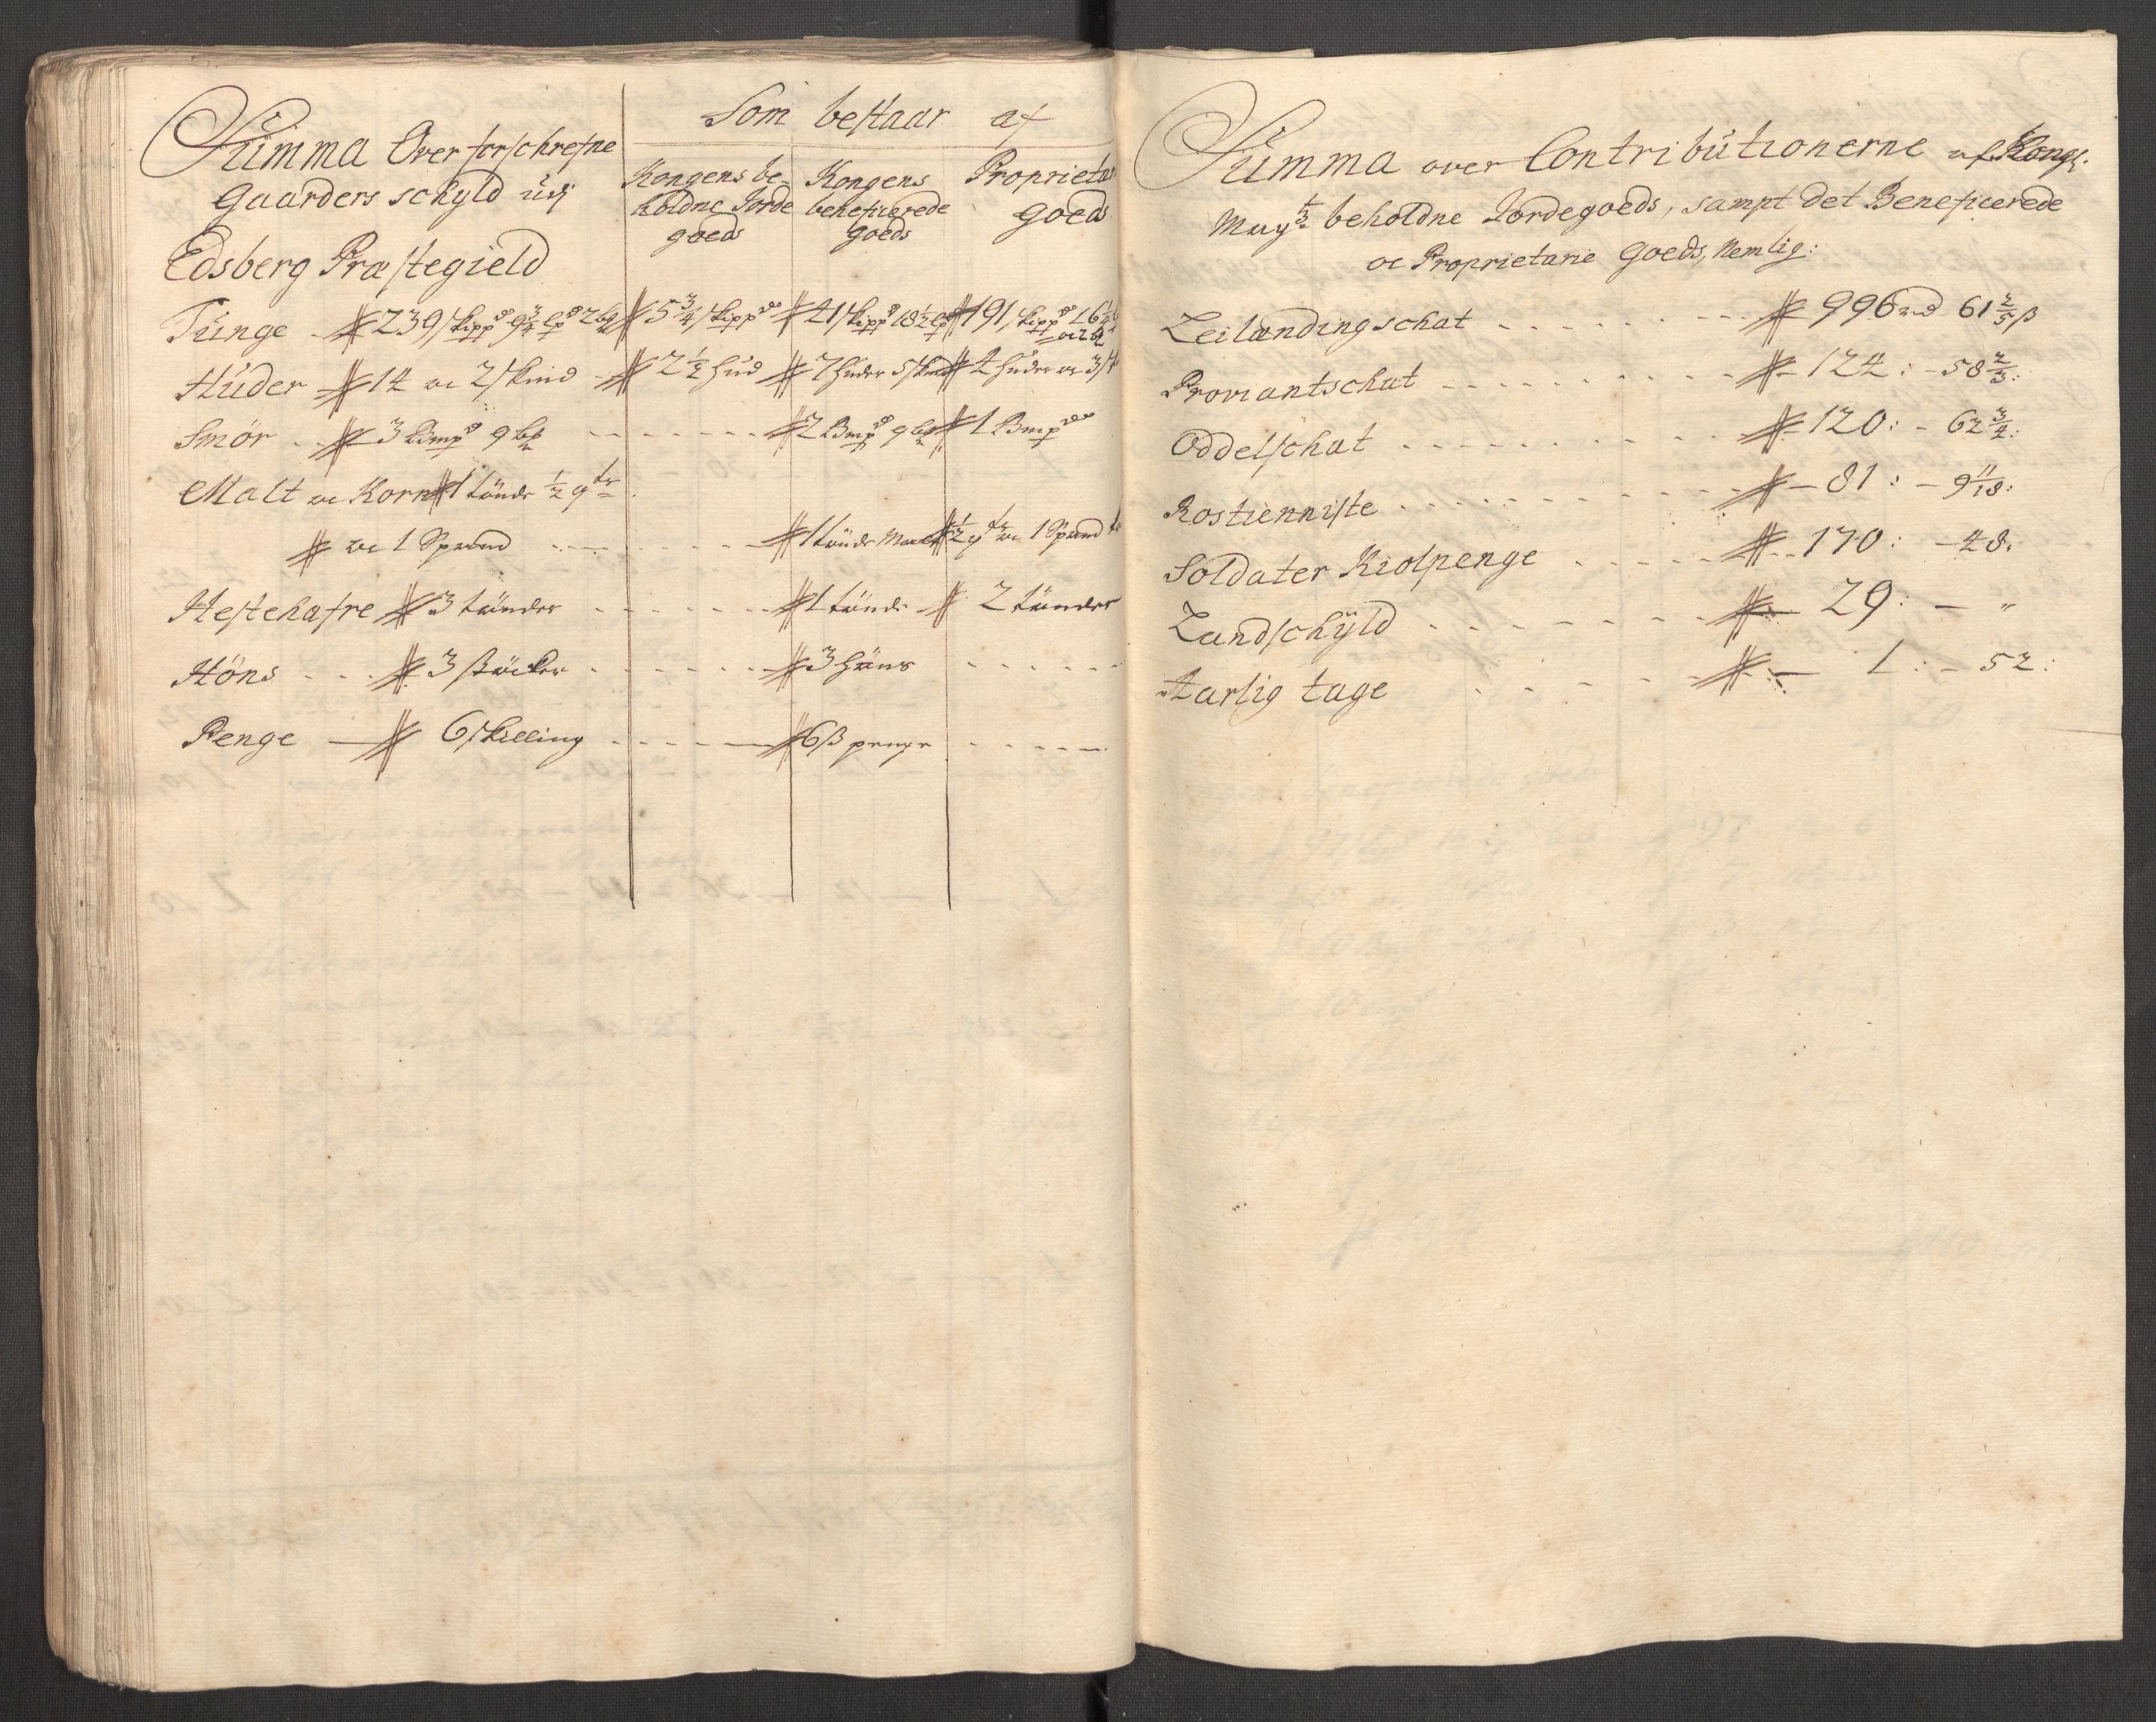 Summa Over forschrefne
Gaarders schyld udj
Edsberg Præstegield
Som bestaar af
Kongens be-
holdne Jorde
goeds
Kongens
beneficerede
goeds
Proprietar
goeds
Tunge - 239 skippd 9 3/4 lpd 2 bg
5 3/4 skippd
41 skippd 18 1/2 lp
191 skippd 16 1/4
Huder 14 oc 2 skind
2 1/2 hud
7 huder 5 skind
4 huder oc 3 sk
Smör 3 Bmpd 9 bg
2 Bmpd 9 bg
1 Bmpd
Malt oc Korn 1 tönde 1/2 qtr
oc 1 Spand
1 tönde Malt
1/2 qtr oc 1 Spand
Hestehafre 3 tönder
1 tönde
2 tönder
Höns 3 stöcker
3 höns
Penge 6 skilling
6 ß penge
Summa over Contributionerne af Kongl.
Mayts beholdne Jordegoeds, sampt det Beneficerede
oc Proprietarie Goeds, Nemlig:
Leilændingschat 996 rd 61 2/5 ß
Proviantschat 124: - 58 2/3:
Oddelschat 120: - 62 3/4:
Rostienniste - 81: - 9 11/18:
Soldater Kiolpenge 170: - 48.
Landschÿld 29: - "
Aarlig tage 1: - 52: